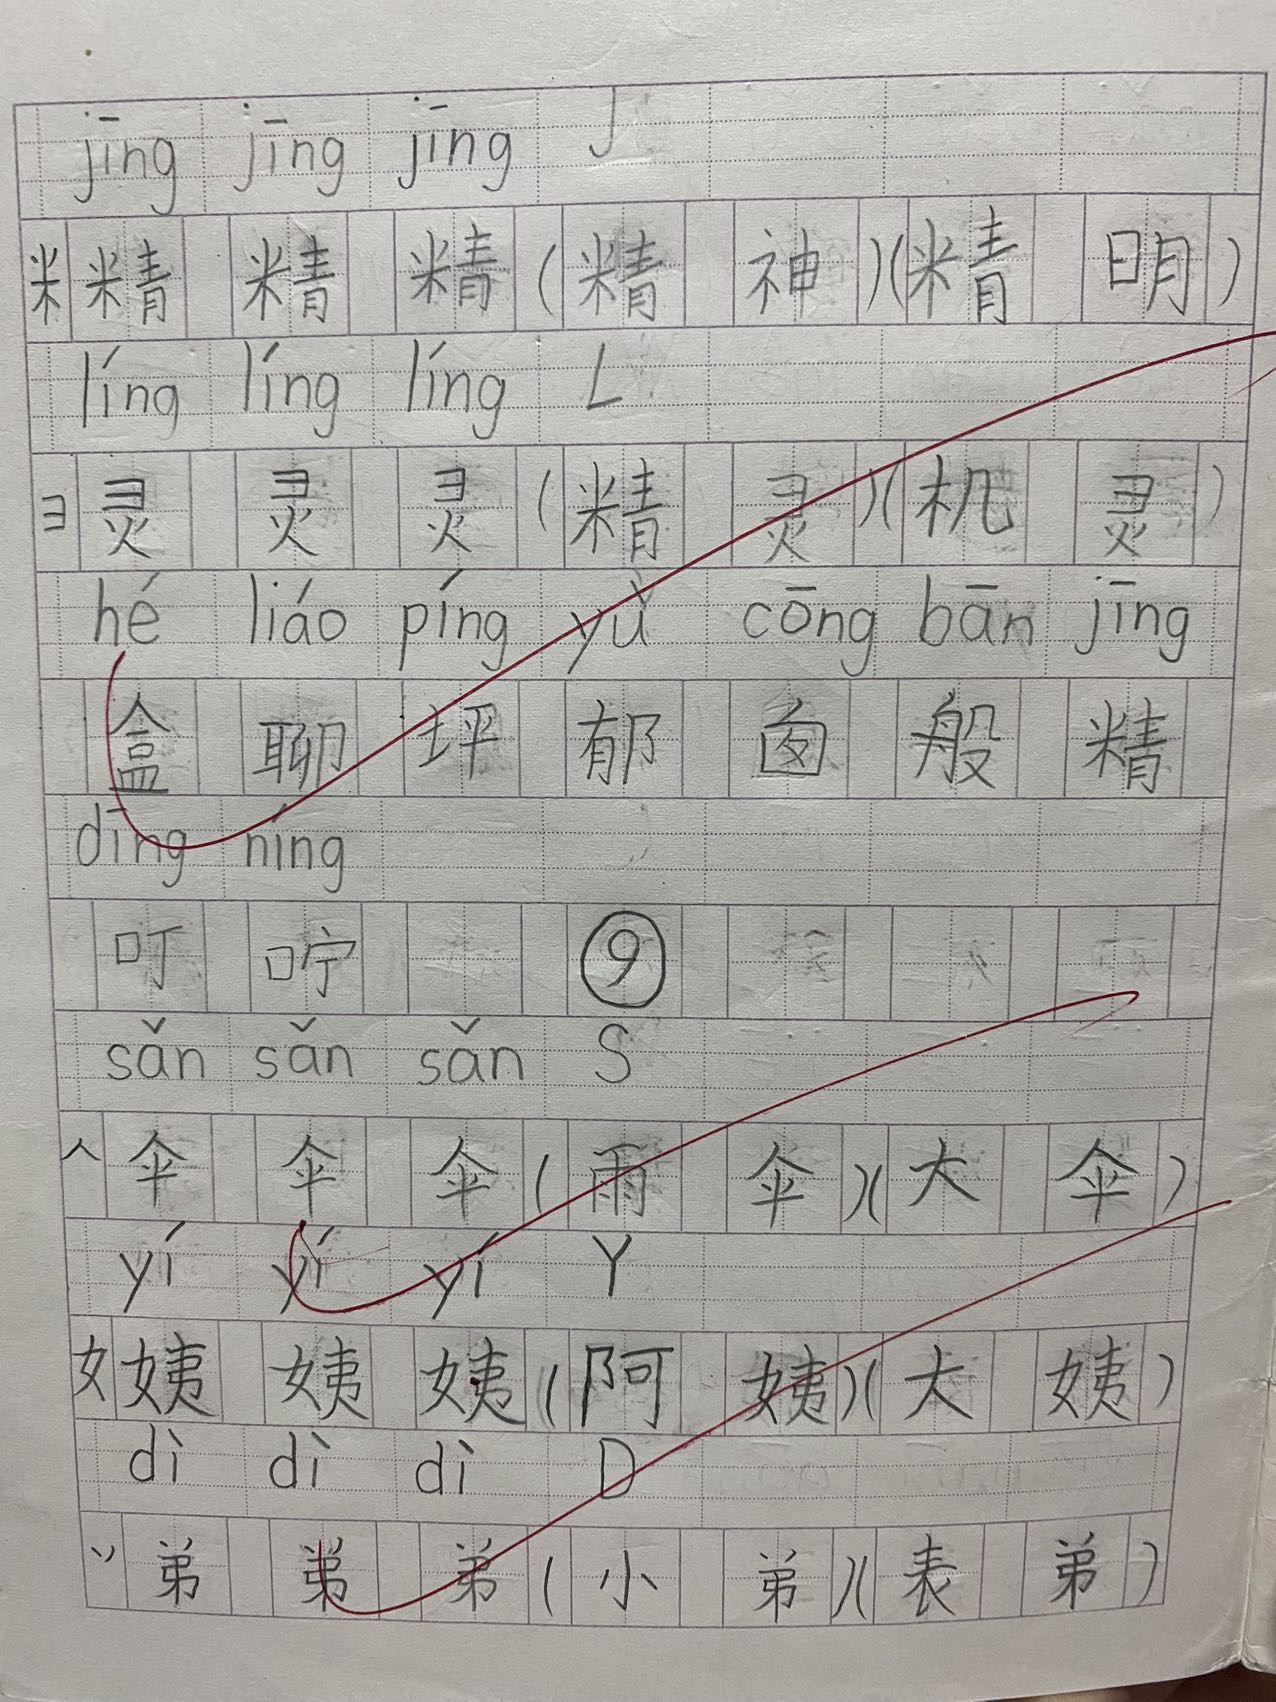 jīng jīng jīng J
米 精 精 精 (精 神)(精 明)
líng líng líng L
彐 灵 灵 灵 (精 灵)(机 灵)
hé liáo píng yù cōng bān jīng
盒 聊 坪 郁 囱 般 精
dīng níng
叮 咛 ⑨
sǎn sǎn sǎn S
𠆢 伞 伞 伞 (雨 伞)(大 伞)
yí yí yí Y
女 姨 姨 姨 (阿 姨)(大 姨)
dì dì dì D
丷 弟 弟 弟 (小 弟)(表 弟)